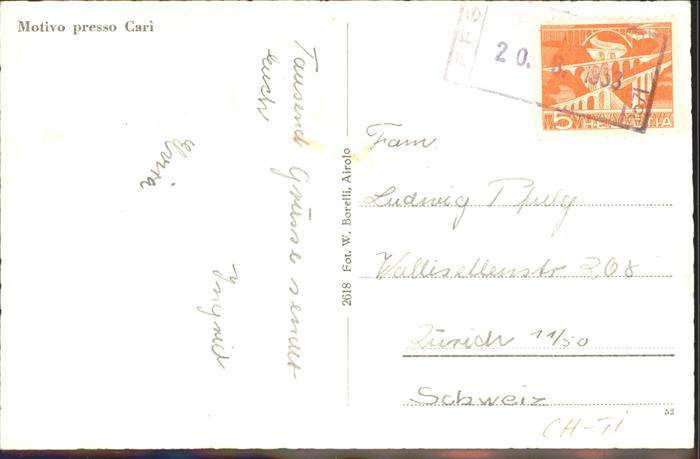 Motivo presso Carì
Tausend Grüsse sendet
euch
Ingrid
20. 1933
5 HELVETIA
2618 Fot. W. Borelli, Airolo
Fam
Ludwig
Wallisellenstr 208
Zürich 11/50
Schweiz
52
CH-TI